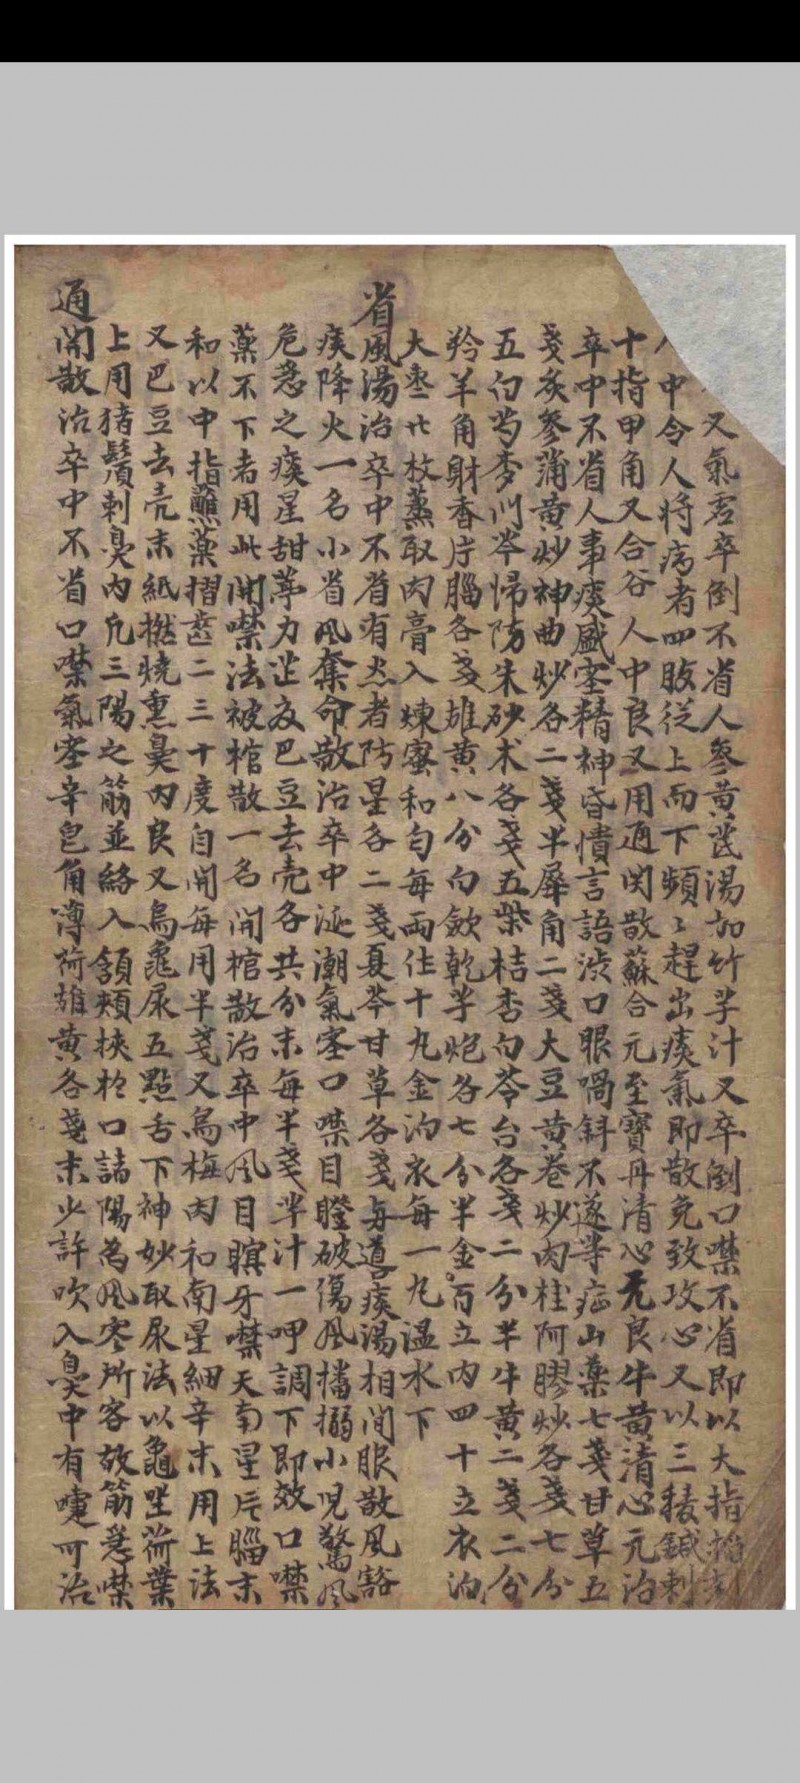 又氣君卒倒不省人參黃芪湯加竹芋汁又卒倒口噤不省即以大指
中令人將病者四肢從上而下頻〻趕出痰氣即散免致攻心又以三稜鍼刺
十指甲角又合谷人中良又用通関散蘇合元至寶丹清心元良牛黃清心元治
卒中不省人事痰盛塞精神昏憒言語渋口眼喎斜不遂等症山藥七戔甘草五
戔炙參蒲黃炒神曲炒各二戔半犀角二戔大豆黃卷炒肉桂阿膠炒各戔七分
五白芍麥川芩歸防朱砂术各戔五柴桔杏白苓台各戔二分半牛黃二戔二分
羚羊角射香片腦各戔雄黃八分白歛乾芋炮各七分半金百立內四十立衣泊
大棗廿枚蒸取肉膏入煉蜜和勻每兩作十丸金泊衣每一丸溫水下
省風湯治卒中不省有炎者防星各二戔夏芩甘草各戔与導痰湯相間服散風豁
痰降火一名小省風奪命散治卒中涎潮氣塞口噤目瞪破傷風搐搦小児驚風
危急之痰星甜葶力芷夏巴豆去壳各共分末每半戔芋汁一呷調下即效口噤
藥不下者用此開噤法被棺散一名開棺散治卒中风目瞑牙噤天南星片腦末
和以中指蘸藥摺齒二三十度自開每用半戔又烏梅肉和南星細辛末用上法
又巴豆去壳末紙撚燒熏鼻內良又烏龜尿五點舌下神妙取尿法以龜坐荷葉
上用猪鬚刺鼻內凢三陽之筋並絡入頷頰挾於口諸陽為风寒所客故筋急噤
通開散治卒中不省口噤氣塞辛皂角薄荷雄黃各戔末少許吹入鼻中有嚏可治